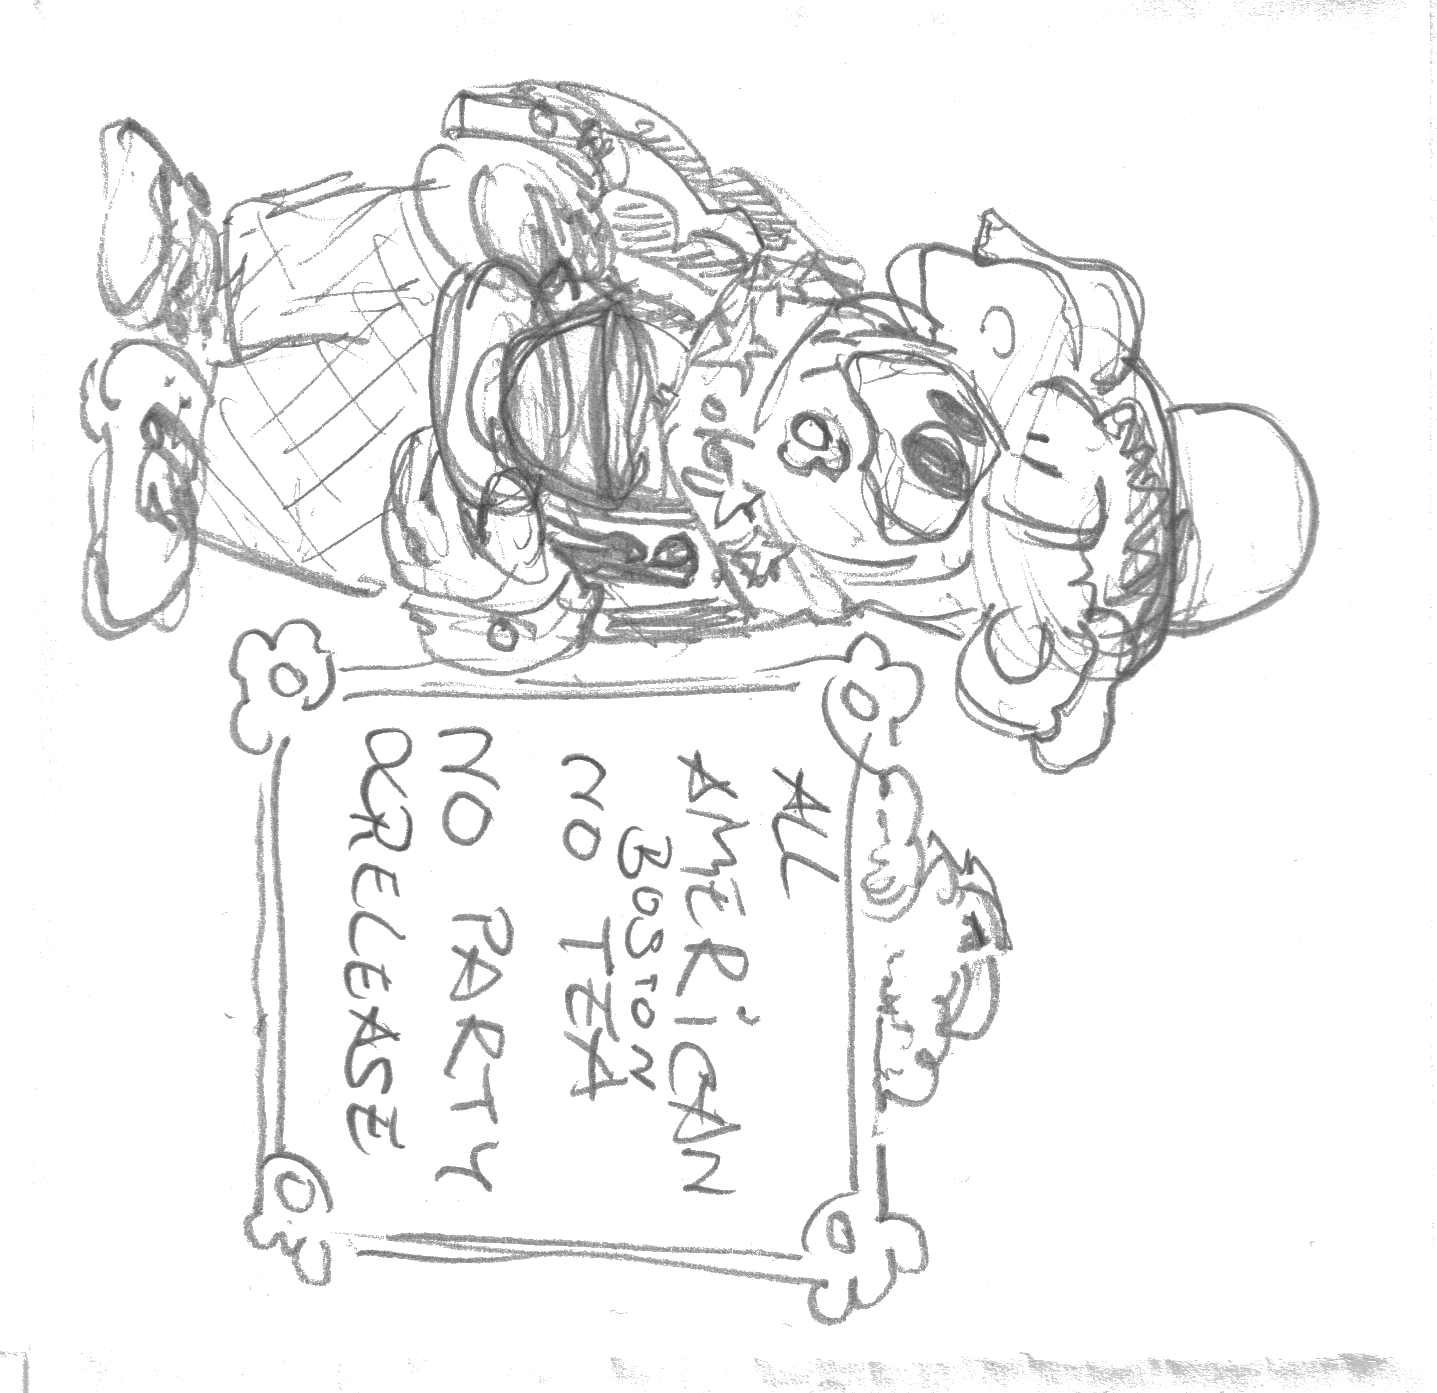 oby
ALL
AMERICAN
BOSTON
NO TEA
NO PARTY
RELEASE